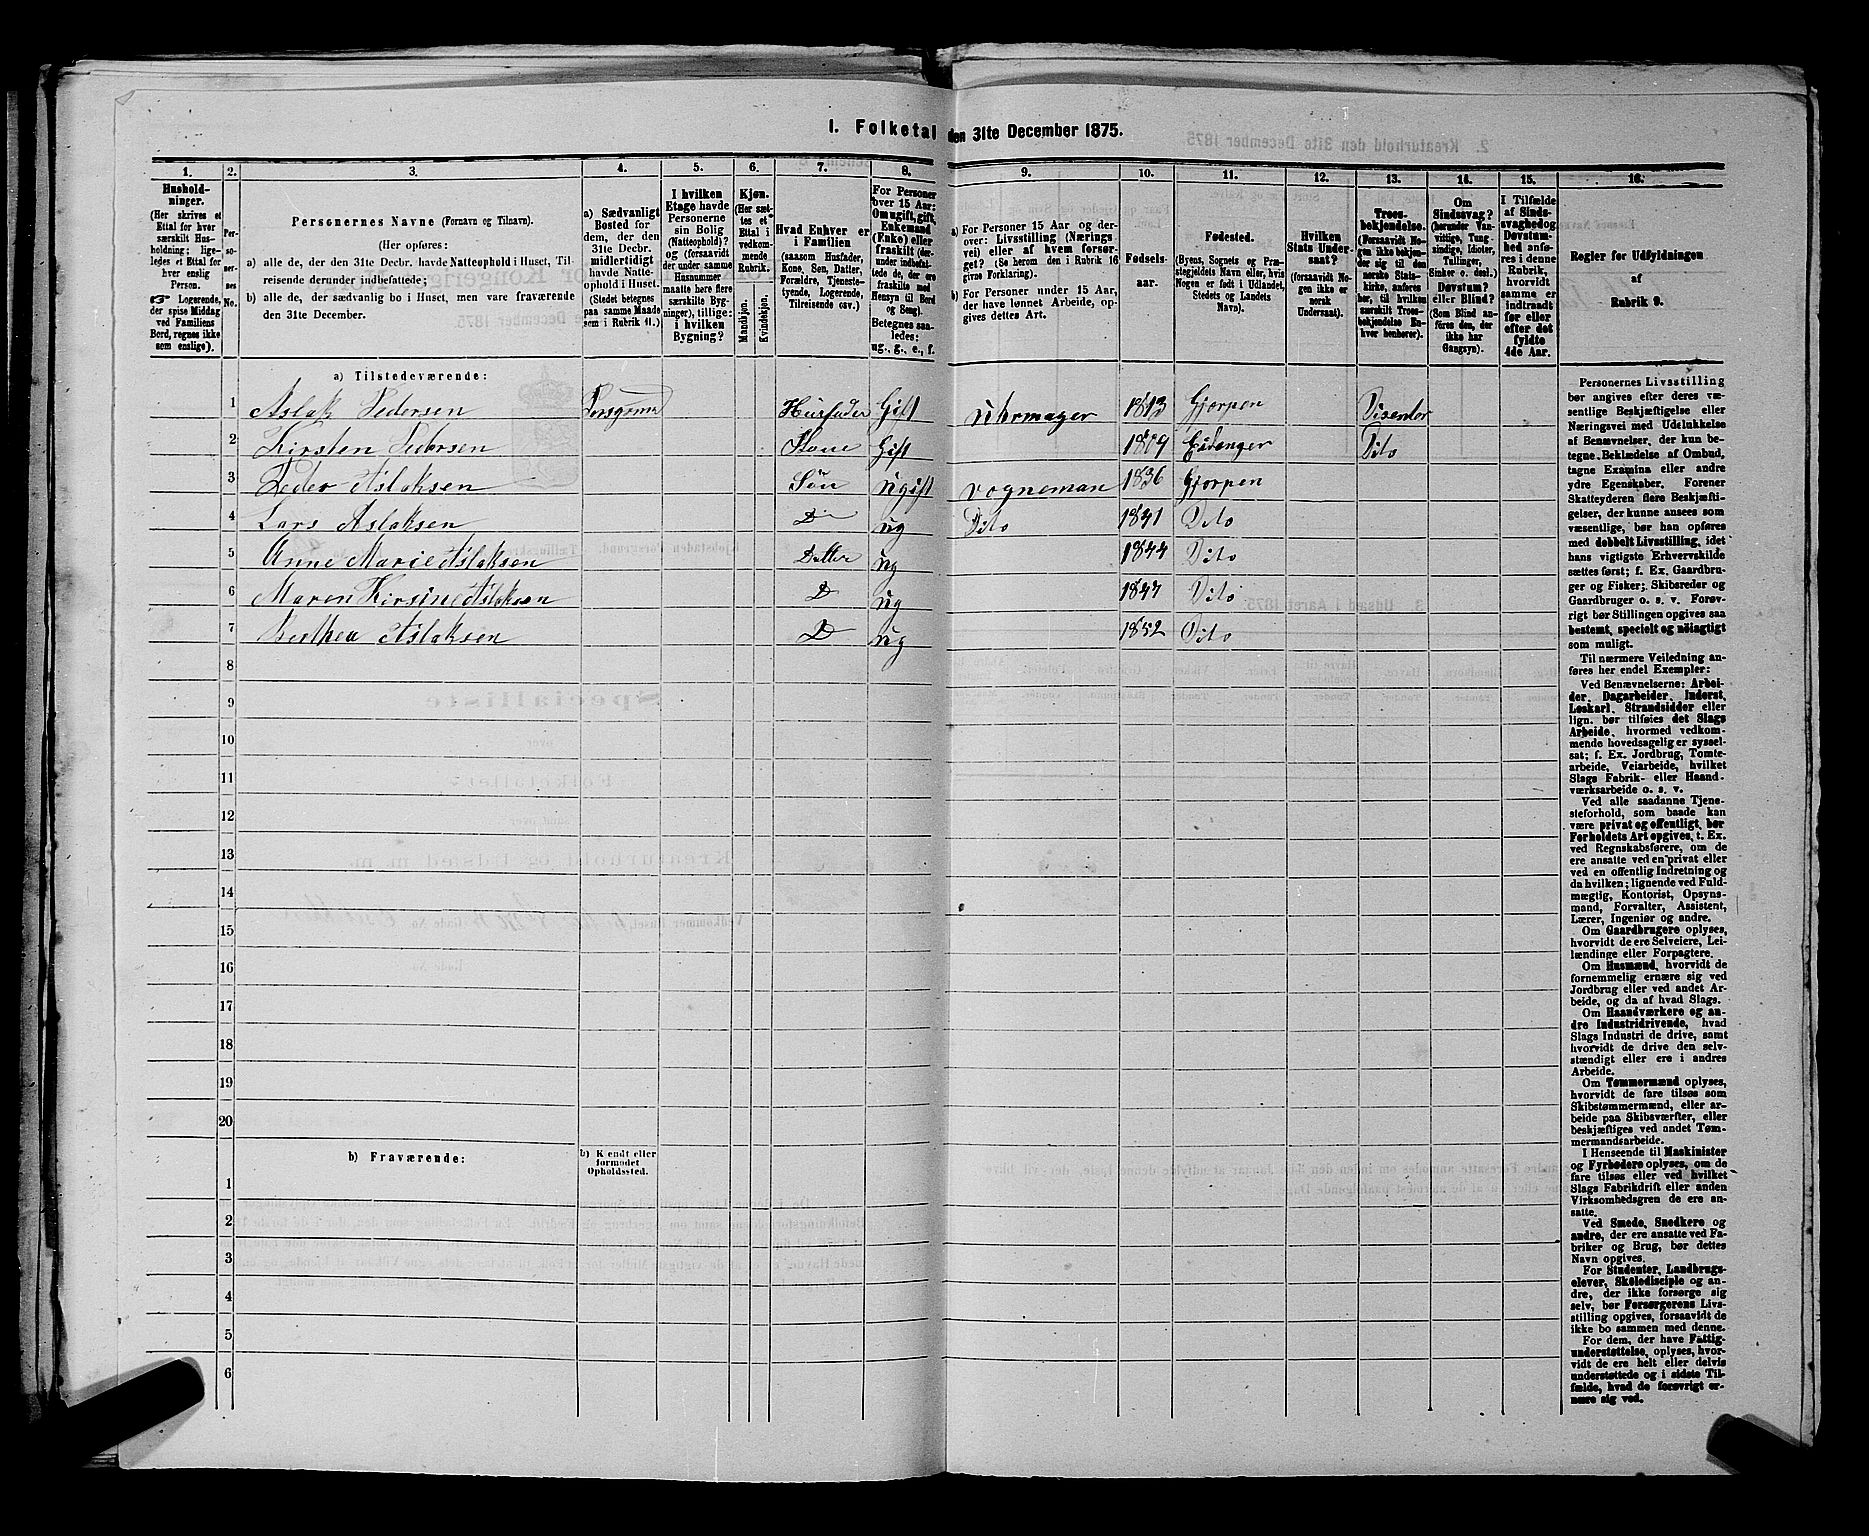 I. Folketal den 31te December 1875.
1. 2. 3. 4. 5. 6. 7. 8. 9. 10. 11. 12. 13. 14. 15. 16.
Hushold-
ninger.
(Her skrives et
Ettal for hver
særskilt Hus-
holdning; lige-
ledes et Ettal for
hver enslig
Person.
☞ Logerende,
der spise Middag
ved Familiens
Bord, regnes ikke
som enslige).
Per-
so-
ner-
nes
No.
Personernes Navne (Fornavn og Tilnavn).
(Her opføres:
a) alle de, der den 31te Decbr. havde Natteophold i Huset, Til-
reisende derunder indbefattede;
b) alle de, der sædvanlig bo i Huset, men vare fraværende
den 31te December.
a) Sædvanligt
Bosted for
dem, der den
31te Decbr.
midlertidigt
havde Natte-
ophold i Huset.
(Stedet betegnes
paa samme Maade
som i Rubrik 11.)
I hvilken
Etage havde
Personerne
sin Bolig
(Natteophold)?
og (forsaavidt
der under samme
Husnummer
maatte høre flere
særskilte Byg-
ninger), tillige:
i hvilken
Bygning?
Kjøn.
(Her sæt-
tes et
Ettal i
vedkom-
mende
Rubrik.
Mandkjøn.
Kvindekjøn.
Hvad Enhver er
i Familien
(saasom Husfader,
Kone, Søn, Datter,
Forældre, Tjeneste-
tyende, Logerende,
Tilreisende osv.)
For Personer
over 15 Aar:
Om ugift, gift,
Enkemand
(Enke) eller
fraskilt (der-
under indbefat-
tede de, der ere
fraskilte med
Hensyn til Bord
og Seng).
Betegnes saa-
ledes:
ug., g., e., f.
a) For Personer 15 Aar og der-
over: Livsstilling (Nærings-
vei) eller af hvem forsør-
get? (Se herom den i Rubrik 16
givne Forklaring).
b) For Personer under 15 Aar,
der have lønnet Arbeide, op-
gives dettes Art.
Fødsels-
aar.
Fødested.
(Byens, Sognets og Præ-
stegjeldets Navn eller, hvis
Nogen er født i Udlandet,
Stedets og Landets
Navn).
Hvilken
Stats Under-
saat?
(forsaavidt No-
gen ikke er
norsk
Undersaat).
Troes-
bekjendelse.
(Forsaavidt No-
gen ikke bekjen-
der sig til den
norske Stats-
kirke, anføres
her, til hvilken
særskilt Troes-
bekjendelse En-
hver henhører).
Om
Sindssvag?
(herunder Van-
vittige, Tung-
sindige, Idioter,
Tullinger,
Sinker o. desl.)
Døvstum?
eller Blind?
(Som Blind an-
føres den, der
ikke har
Gangsyn).
I Tilfælde
af Sinds-
svaghed og
Døvstum-
hed anfø-
res i denne
Rubrik,
hvorvidt
samme er
indtraadt
før eller
efter det
fyldte
4de Aar.
Regler for Udfyldningen
af
Rubrik 9.
a) Tilstedeværende:
1 Aslak Pedersen Porsgrund Husfader Gift Uhrmager 1813 Gjerpen Disenter
2 Kirsten Pedersen Kone Gift 1809 Eidanger Dito
3 Peder Aslaksen Søn Ugift vogneman 1836 Gjerpen
4 Lars Aslaksen D ug Dito 1841 Dito
5 Anne Marie Aslaksen Datter ug 1844 Dito
6 Maren Kirsine Aslaksen D ug 1847 Dito
7 Berthea Aslaksen D ug 1852 Dito
8
9
10
11
12
13
14
15
16
17
18
19
20
b) Fraværende:
b) Kendt eller
formodet
Opholdssted.
1
2
3
4
5
6
Personernes Livsstilling
bør angives efter deres væ-
sentlige Beskjæftigelse eller
Næringsvei med Udelukkelse
af Benævnelser, der kun be-
tegne Beklædelse af Ombud,
tagne Examina eller andre
ydre Egenskaber. Forener
Skatteyderen flere Beskjæfti-
gelser, der kunne ansees som
væsentlige, bør han opføres
med dobbelt Livsstilling, idet
hans vigtigste Erhvervskilde
sættes først; f. Ex. Gaardbru-
ger og Fisker; Skibsreder og
Gaardbruger o. s. v. Forøv-
rigt bør Stillingen opgives saa
bestemt, specielt og nöiagtigt
som muligt.
Til nærmere Veiledning an-
føres her endel Exempler:
Ved Benævnelserne: Arbei-
der, Dagarbeider, Inderst,
Løskarl, Strandsidder eller
lign. bør tilføies det Slags
Arbeide, hvormed vedkom-
mende hovedsagelig er syssel-
sat; f. Ex. Jordbrug, Tomte-
arbeide, Veiarbeide, hvilket
Slags Fabrik- eller Haand-
værksarbeide o. s. v.
Ved alle saadanne Tjene-
steforhold, som baade kan
være privat og offentligt, bør
Forholdets Art opgives, t. Ex.
ved Regnskabsførere, om de
ere ansatte ved en privat eller
ved en offentlig Indretning og
da hvilken; lignende ved Fuld-
mægtig, Kontorist, Opsyns-
mand, Forvalter, Assistent,
Lærer, Ingeniør og andre.
Om Gaardbrugere oplyses,
hvorvidt de ere Selveiere, Lei-
lændinge eller Forpagtere.
Om Husmænd, hvorvidt de
fornemmelig ernære sig ved
Jordbrug eller ved andet Ar-
beide, og da af hvad Slags.
Om Haandværkere og an-
dre Industridrivende, hvad
Slags Industri de drive, samt
hvorvidt de drive den selv-
stændigt eller ere i andres
Arbeide.
Om Tømmermænd oplyses,
hvorvidt de fare tilsøs som
Skibstømmermænd, eller ar-
beide paa Skibsværfter, eller
beskjæftiges ved andet Tøm-
mermandsarbeide.
I Henseende til Maskinister
og Fyrbødere oplyses, om de
fare tilsøs eller ved hvilket
Slags Fabrikdrift eller anden
Virksomhedsgren de ere an-
satte.
Ved Smede, Snedkere og
andre, der ere ansatte ved Fa-
briker og Brug, bør dettes
Navn opgives.
For Studenter, Landbrugs-
elever, Skoledisciple og an-
dre, der ikke forsørge sig
selv, bør Forsørgerens Livs-
stilling opgives, forsaavidt de
ikke bo sammen med denne.
For dem, der have Fattig-
understøttelse, oplyses, hvor-
vidt de ere helt eller delvis
understøttede og i sidste Til-
fælde, hvad de forøvrigt er-
nære sig ved.